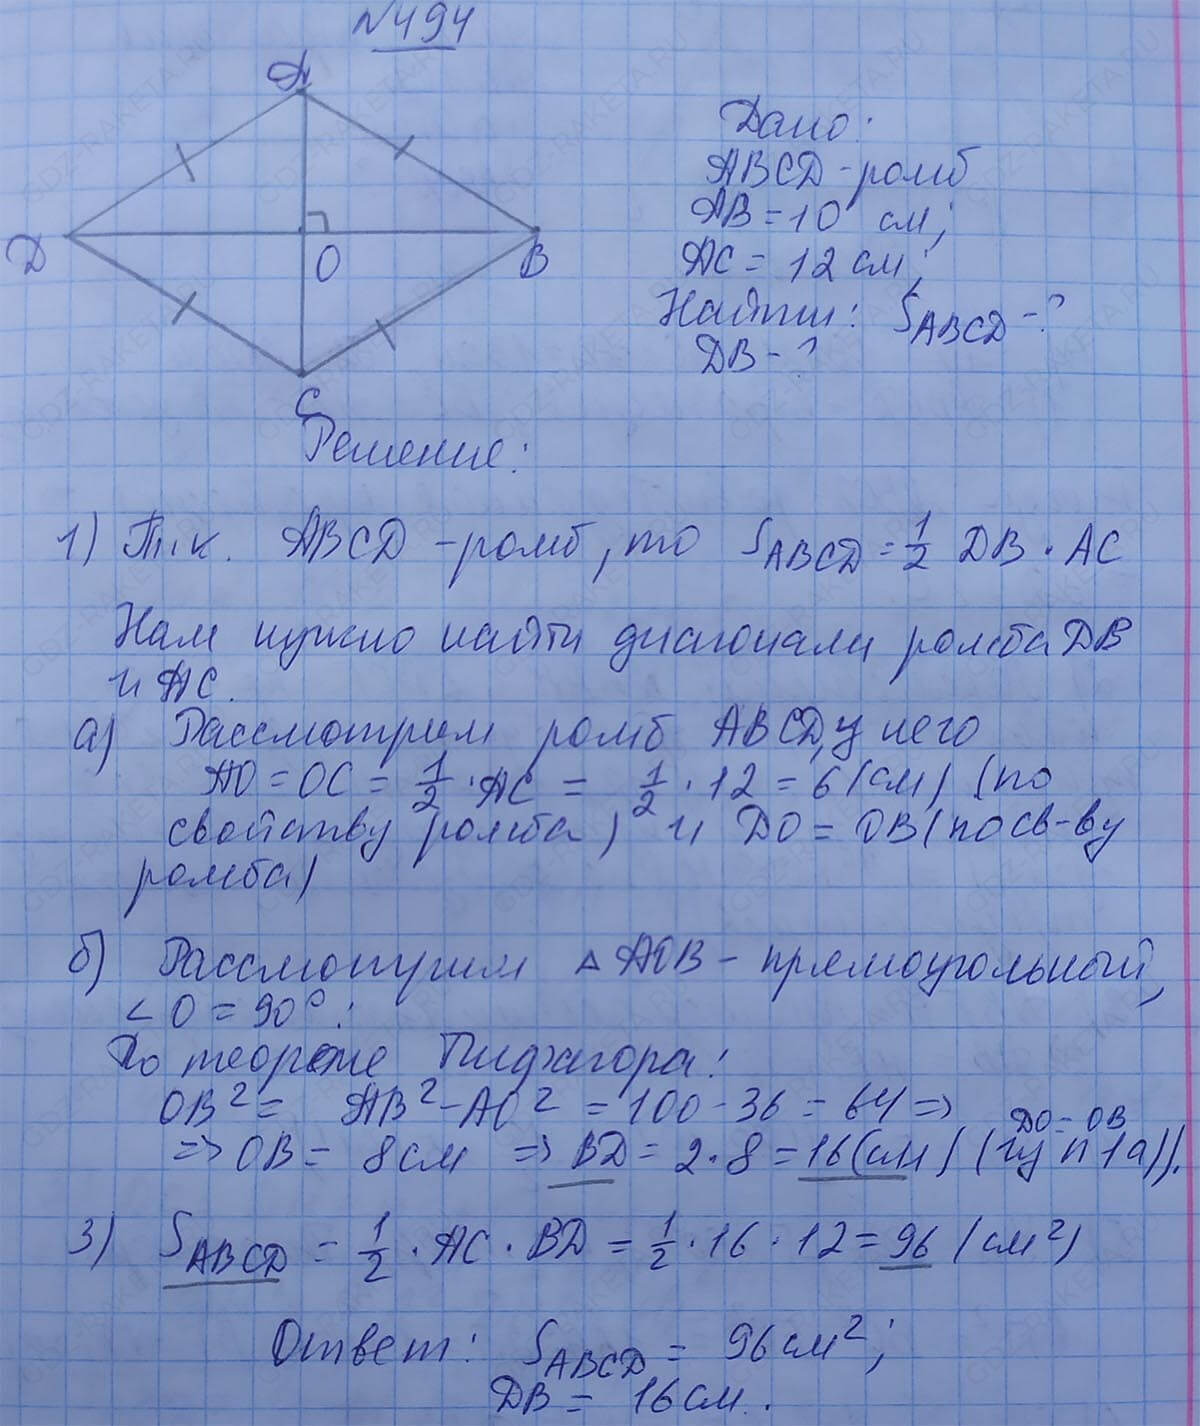 №494
A
D
O
B
C
Дано:
ABCD - ромб
AB = 10 см;
AC = 12 см;
Найти: S_ABCD - ?
DB - ?
Решение:
1) Т.к. ABCD - ромб, то S_ABCD = 1/2 DB · AC
Нам нужно найти диагонали ромба DB
и AC.
а) Рассмотрим ромб ABCD, у него
AO = OC = 1/2 · AC = 1/2 · 12 = 6 (см) (по
свойству ромба) и DO = OB (по св-ву
ромба)
б) Рассмотрим △ AOB - прямоугольный,
∠O = 90°:
По теореме Пифагора:
OB² = AB² - AO² = 100 - 36 = 64 =>
DO = OB
=> OB = 8 см => BD = 2 · 8 = 16 (см) (из п 1а)).
3) S_ABCD = 1/2 · AC · BD = 1/2 · 16 · 12 = 96 (см²)
Ответ: S_ABCD = 96 см²;
DB = 16 см.
GDZ-RAKETA.RU